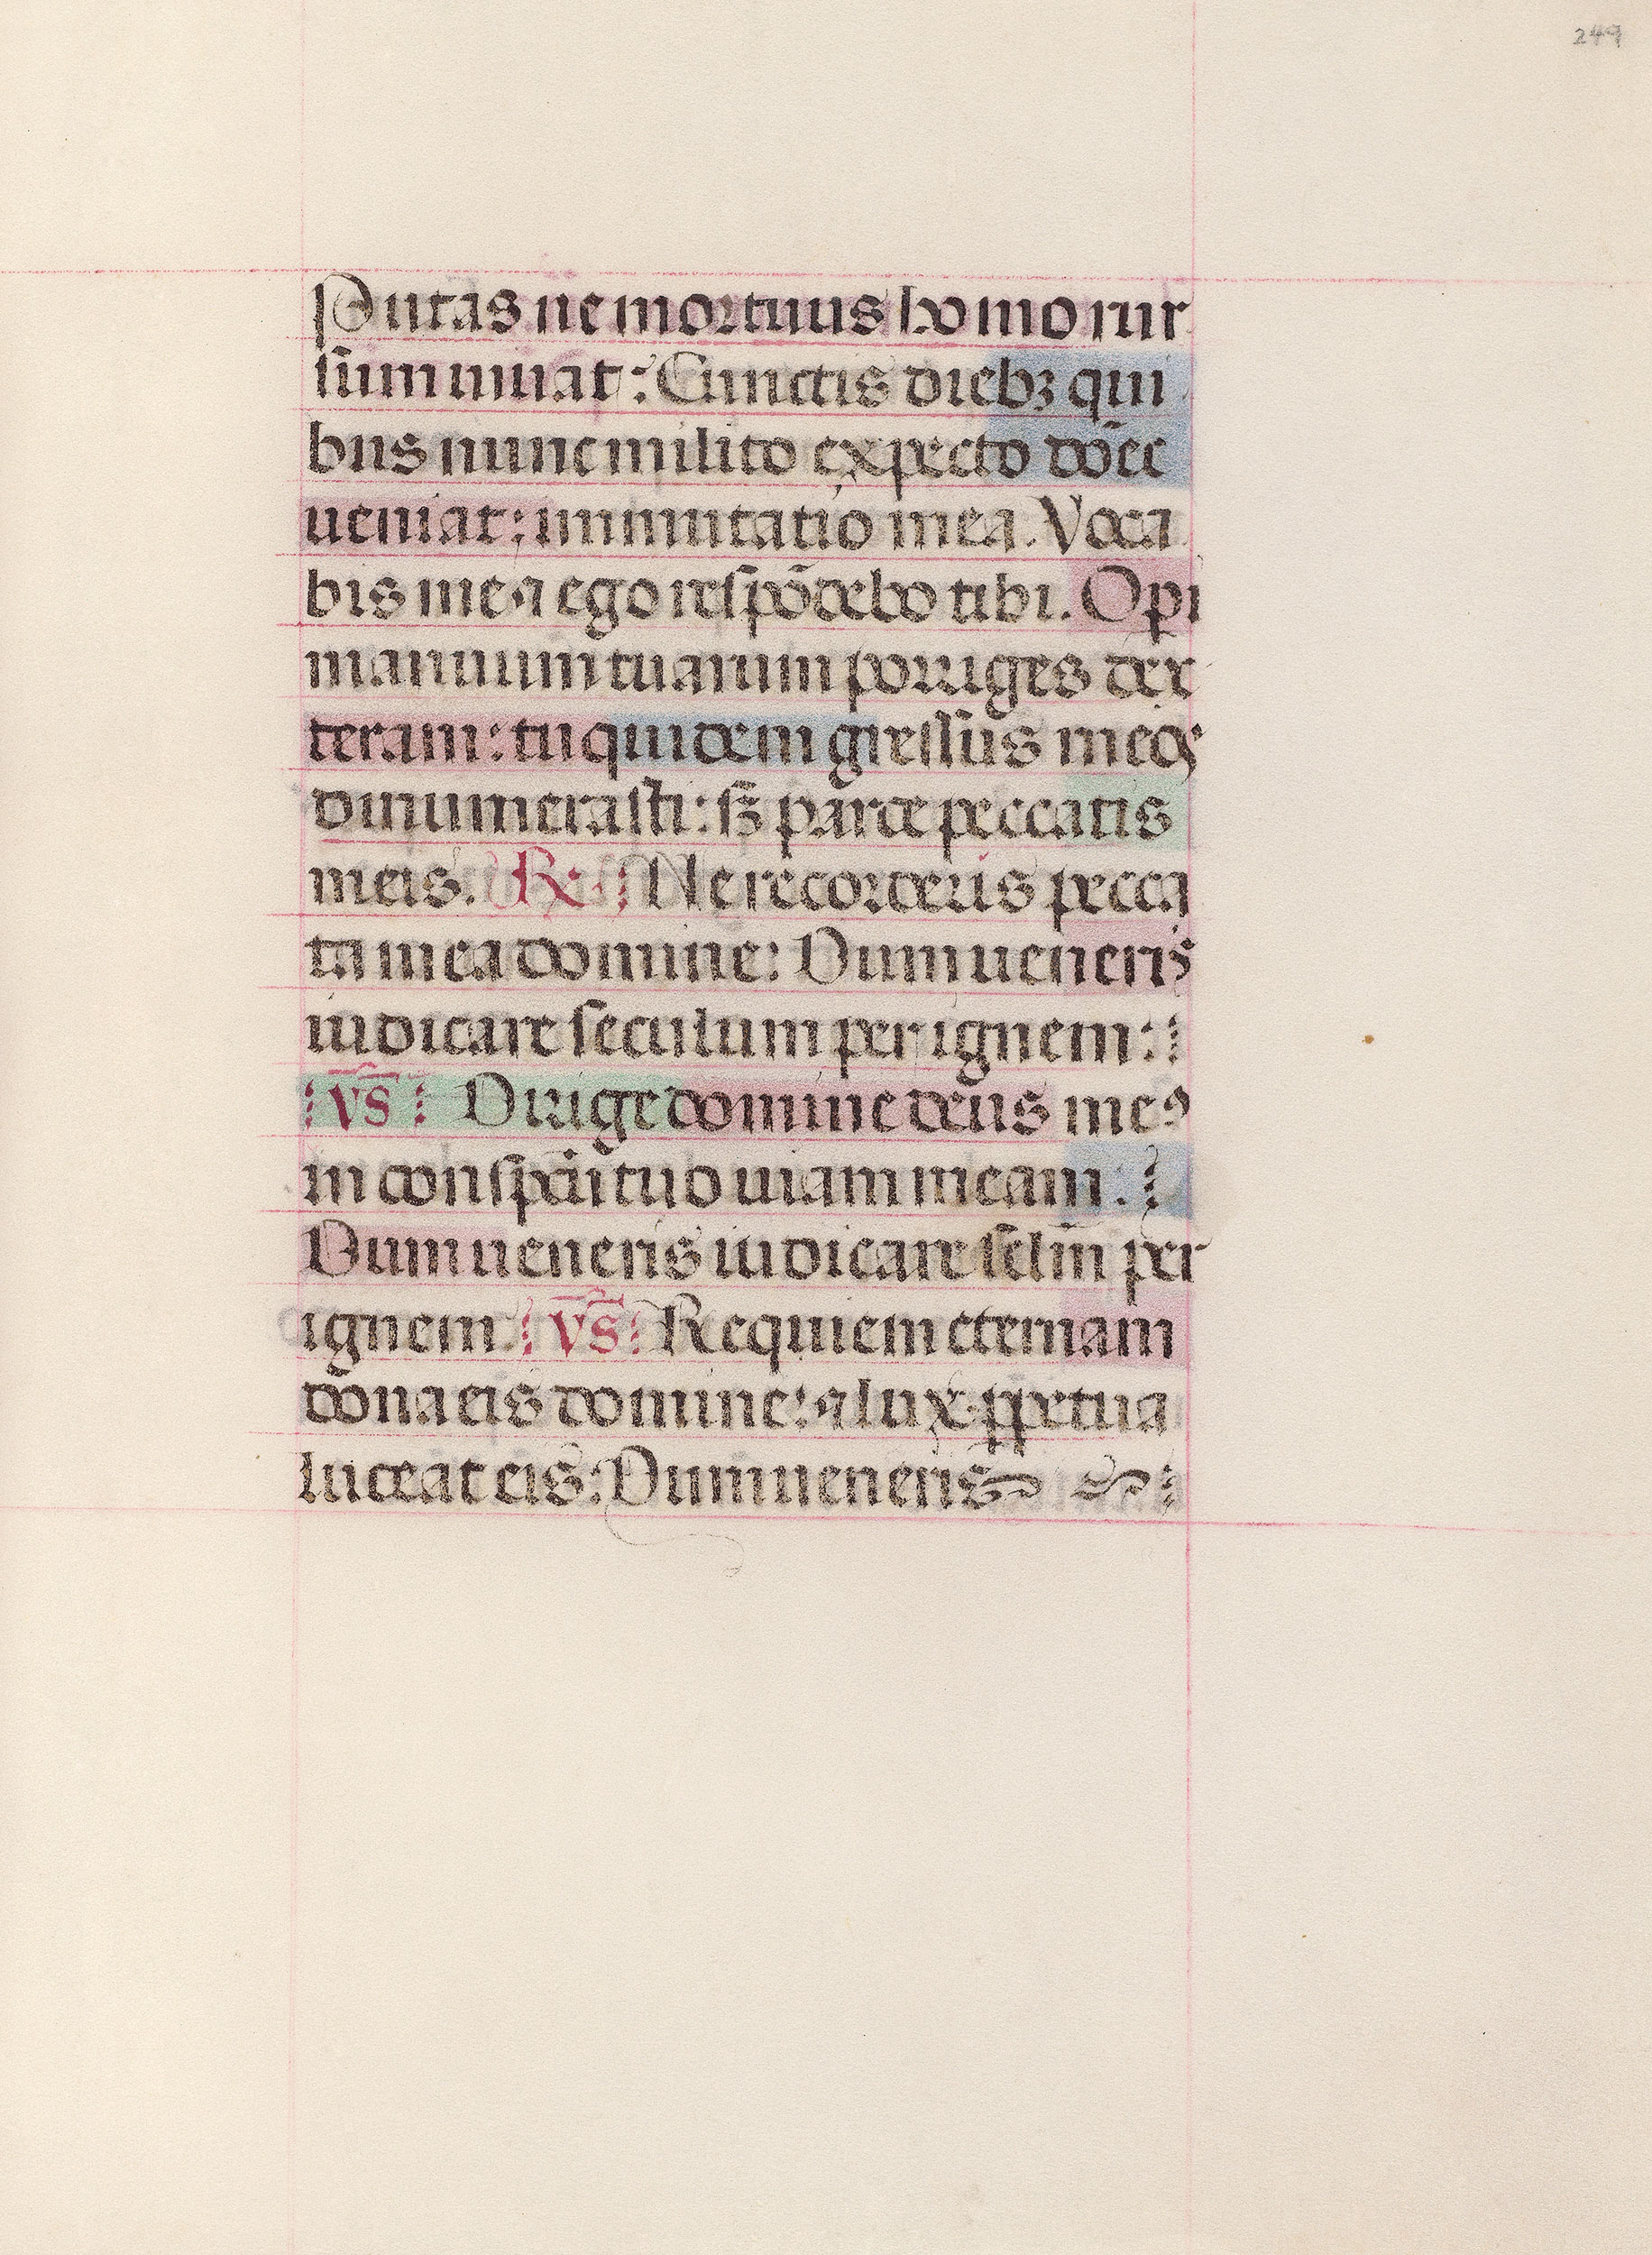 249
Putas ne mortuus homo rur
sum uiuat: Cunctis dieb⁊ qui
bus nunc milito expecto dōec
ueniat: immutatio mea. Voca
bis me ⁊ ego respōdebo tibi. Opi
manuum tuarum porriges dex
teram: tu quidem gressus meos
dinumerasti: sꝫ parce peccatis
meis. R̷ Ne recorderis pecca
ta mea domine: Dum ueneris
iudicare seculum per ignem:
v̄s̄ Dirige domine deus me⁹
in conspectu tuo uiam meam.
Dum ueneris iudicare sclm̄ per
ignem. v̄s̄ Requiem eternam
dona eis domine: ⁊ lux ꝑpetua
luceat eis: Dum ueneris